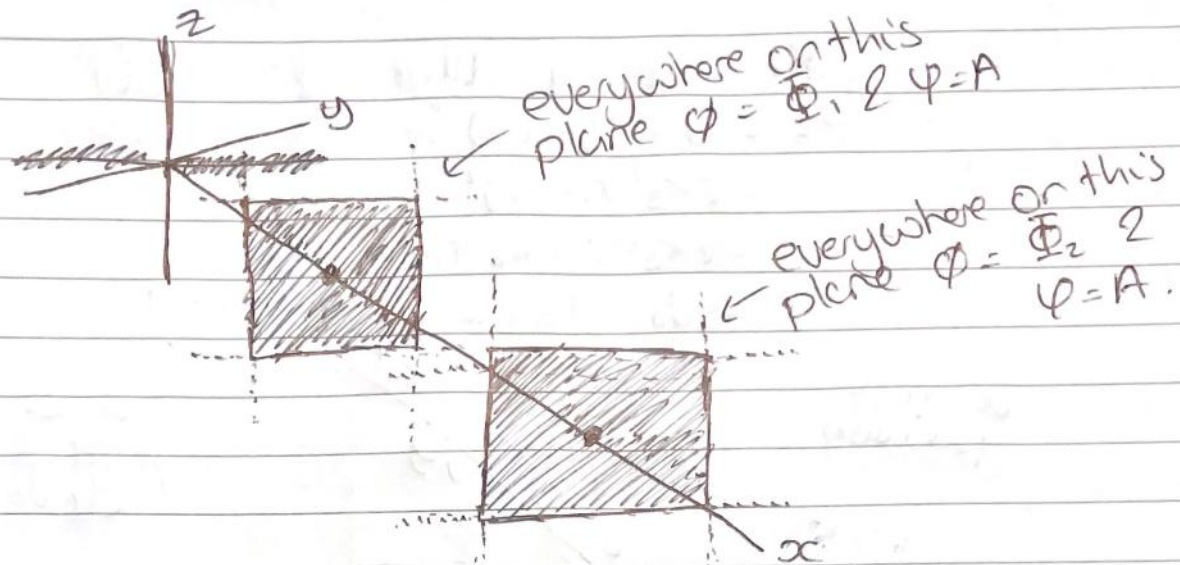 z
y
everywhere on this
plane ϕ = Φ₁ & φ = A
everywhere on this
plane ϕ = Φ₂ &
φ = A.
x